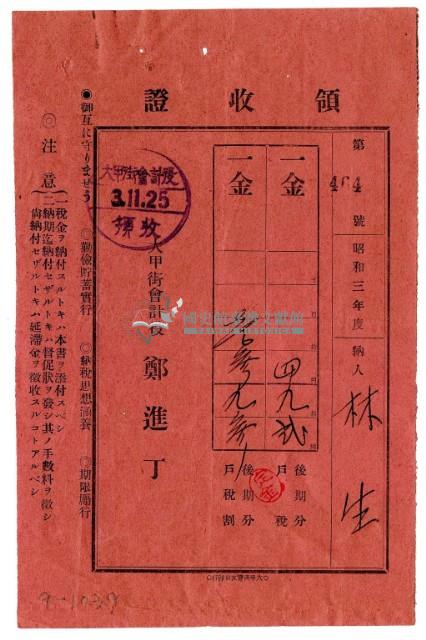 領收證
第464號 昭和三年度 納人 林生
一金 四九貳 後期分 戶稅
一金 後期分 戶稅割
大甲街會計役
3.11.25
領收
大甲街會計役 鄭進丁
◉御互に守りませう ◎勤儉貯蓄實行 ◎納稅思想涵養 ◎期限勵行
◎注意
一稅金ヲ納付スルトキハ本書ヲ添付スベシ
二納期迄納付セザルトキハ督促狀ヲ發シ其ノ手數料ヲ徵シ
尙納付セザルトキハ延滯金ヲ徵收スルコトアルベシ
國史館臺灣文獻館
9-1037